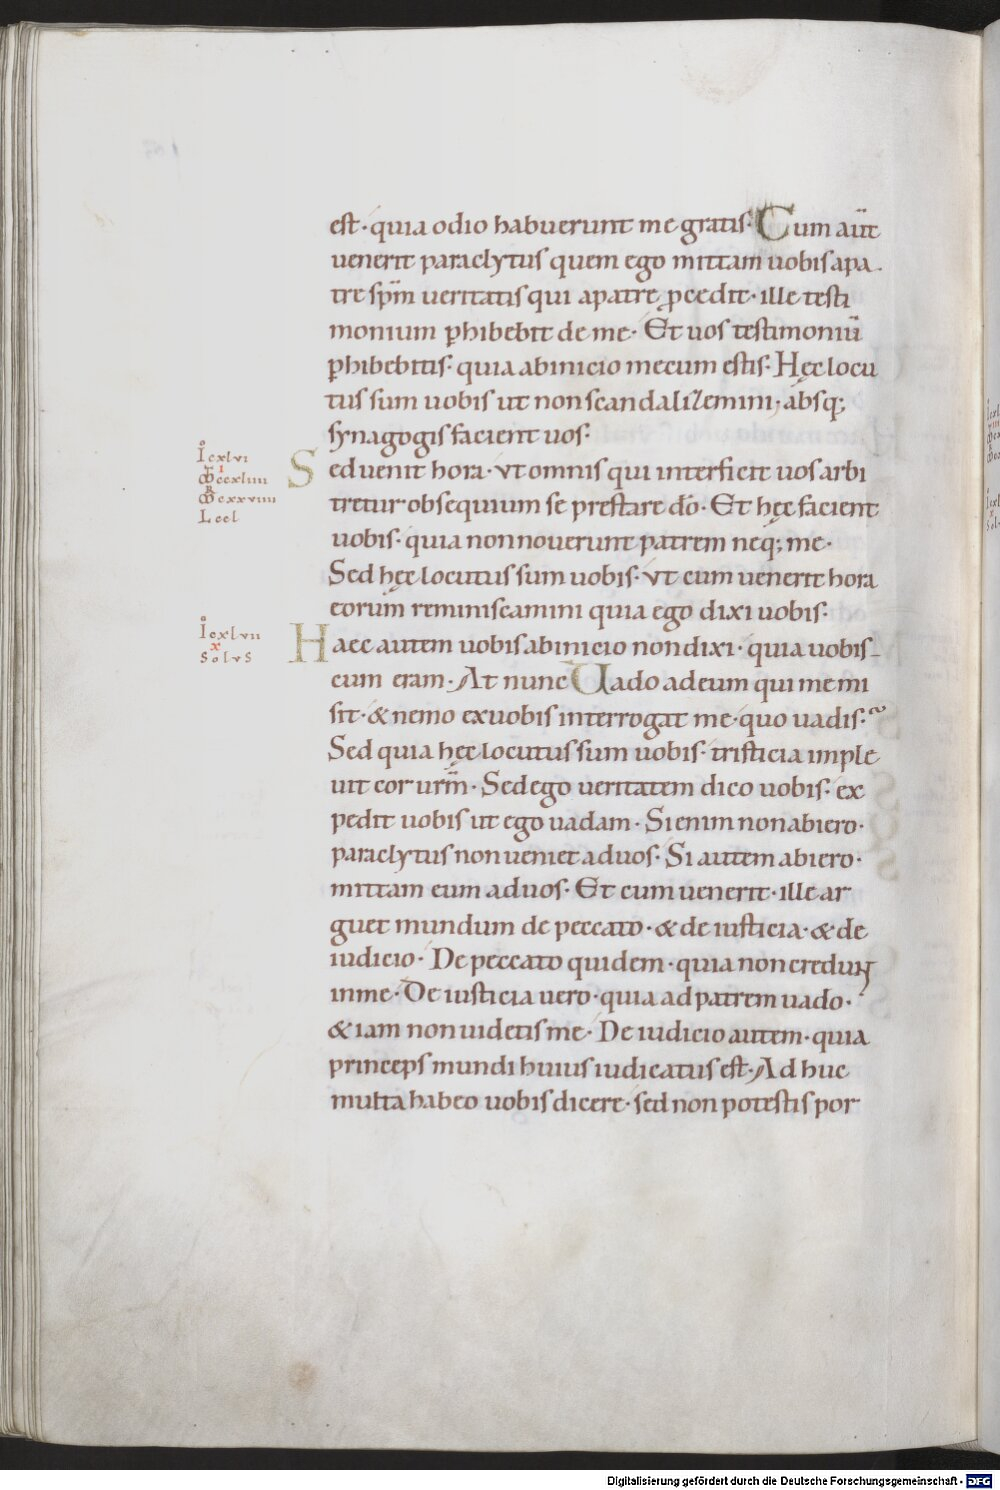 est· quia odio habuerunt me gratis· Cum aut̄
uenerit paraclytus quem ego mittam uobis apa
tre spm̄ ueritatis qui apatre ꝓcedit· ille testi
monium ꝑhibebit de me· Et uos testimoniū
ꝑhibebitis· quia abinicio mecum estis· Hęc locu
tus sum uobis ut non scandalizemini· absq;
synagogis facient uos·
Ioculi
Sed uenit hora· vt omnis qui interficit uos arbi
tretur obsequium se prestare dō· Et hęc facient
uobis· quia non nouerunt patrem neq; me·
Sed hęc locutus sum uobis· vt cum uenerit hora
eorum reminiscamini quia ego dixi uobis·
Haec autem uobis abinicio non dixi· quia uobis
cum eram· At nunc Uado adeum qui me mi
sit· & nemo exuobis interrogat me· quo uadis·
Sed quia hęc locutus sum uobis· tristicia imple
uit cor urm̄· Sed ego ueritatem dico uobis· ex
pedit uobis ut ego uadam· Si enim non abiero·
paraclytus non ueniet aduos· Si autem abiero·
mittam eum aduos· Et cum uenerit· ille ar
guet mundum de peccato· & de iusticia· & de
iudicio· De peccato quidem· quia non credunt
inme· De iusticia uero· quia ad patrem uado·
& iam non uidetis me· De iudicio autem· quia
princeps mundi huius iudicatus est· Ad huc
multa habeo uobis dicere· sed non potestis por
Digitalisierung gefördert durch die Deutsche Forschungsgemeinschaft - DFG